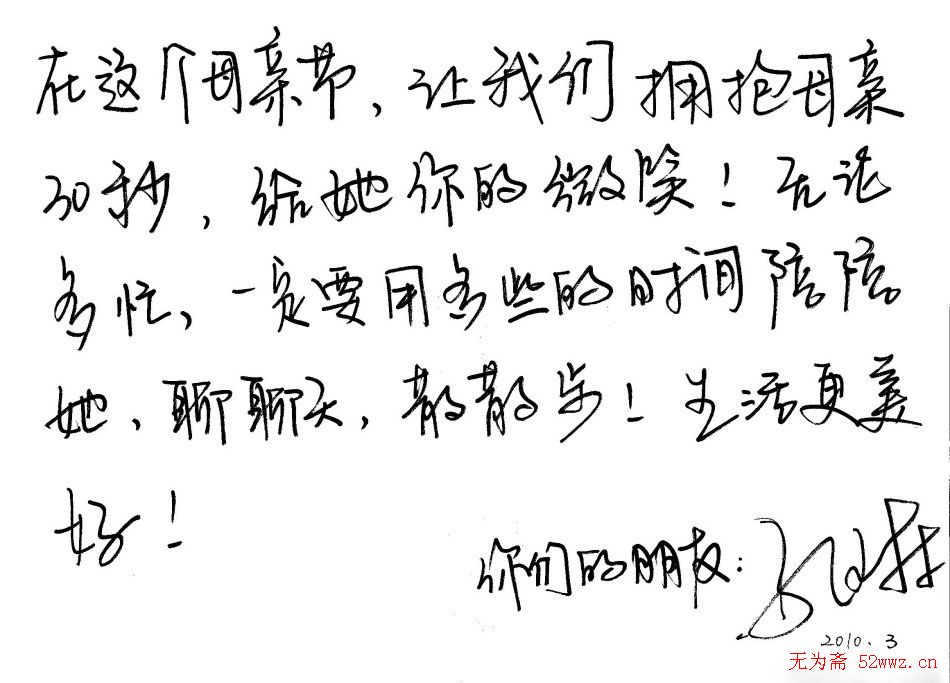 在这个母亲节，让我们拥抱母亲
30秒，给她你的微笑！无论
多忙，一定要用多些的时间陪陪
她，聊聊天，散散步！生活更美
好！
你们的朋友：
2010.3
无为斋 52wwz.cn